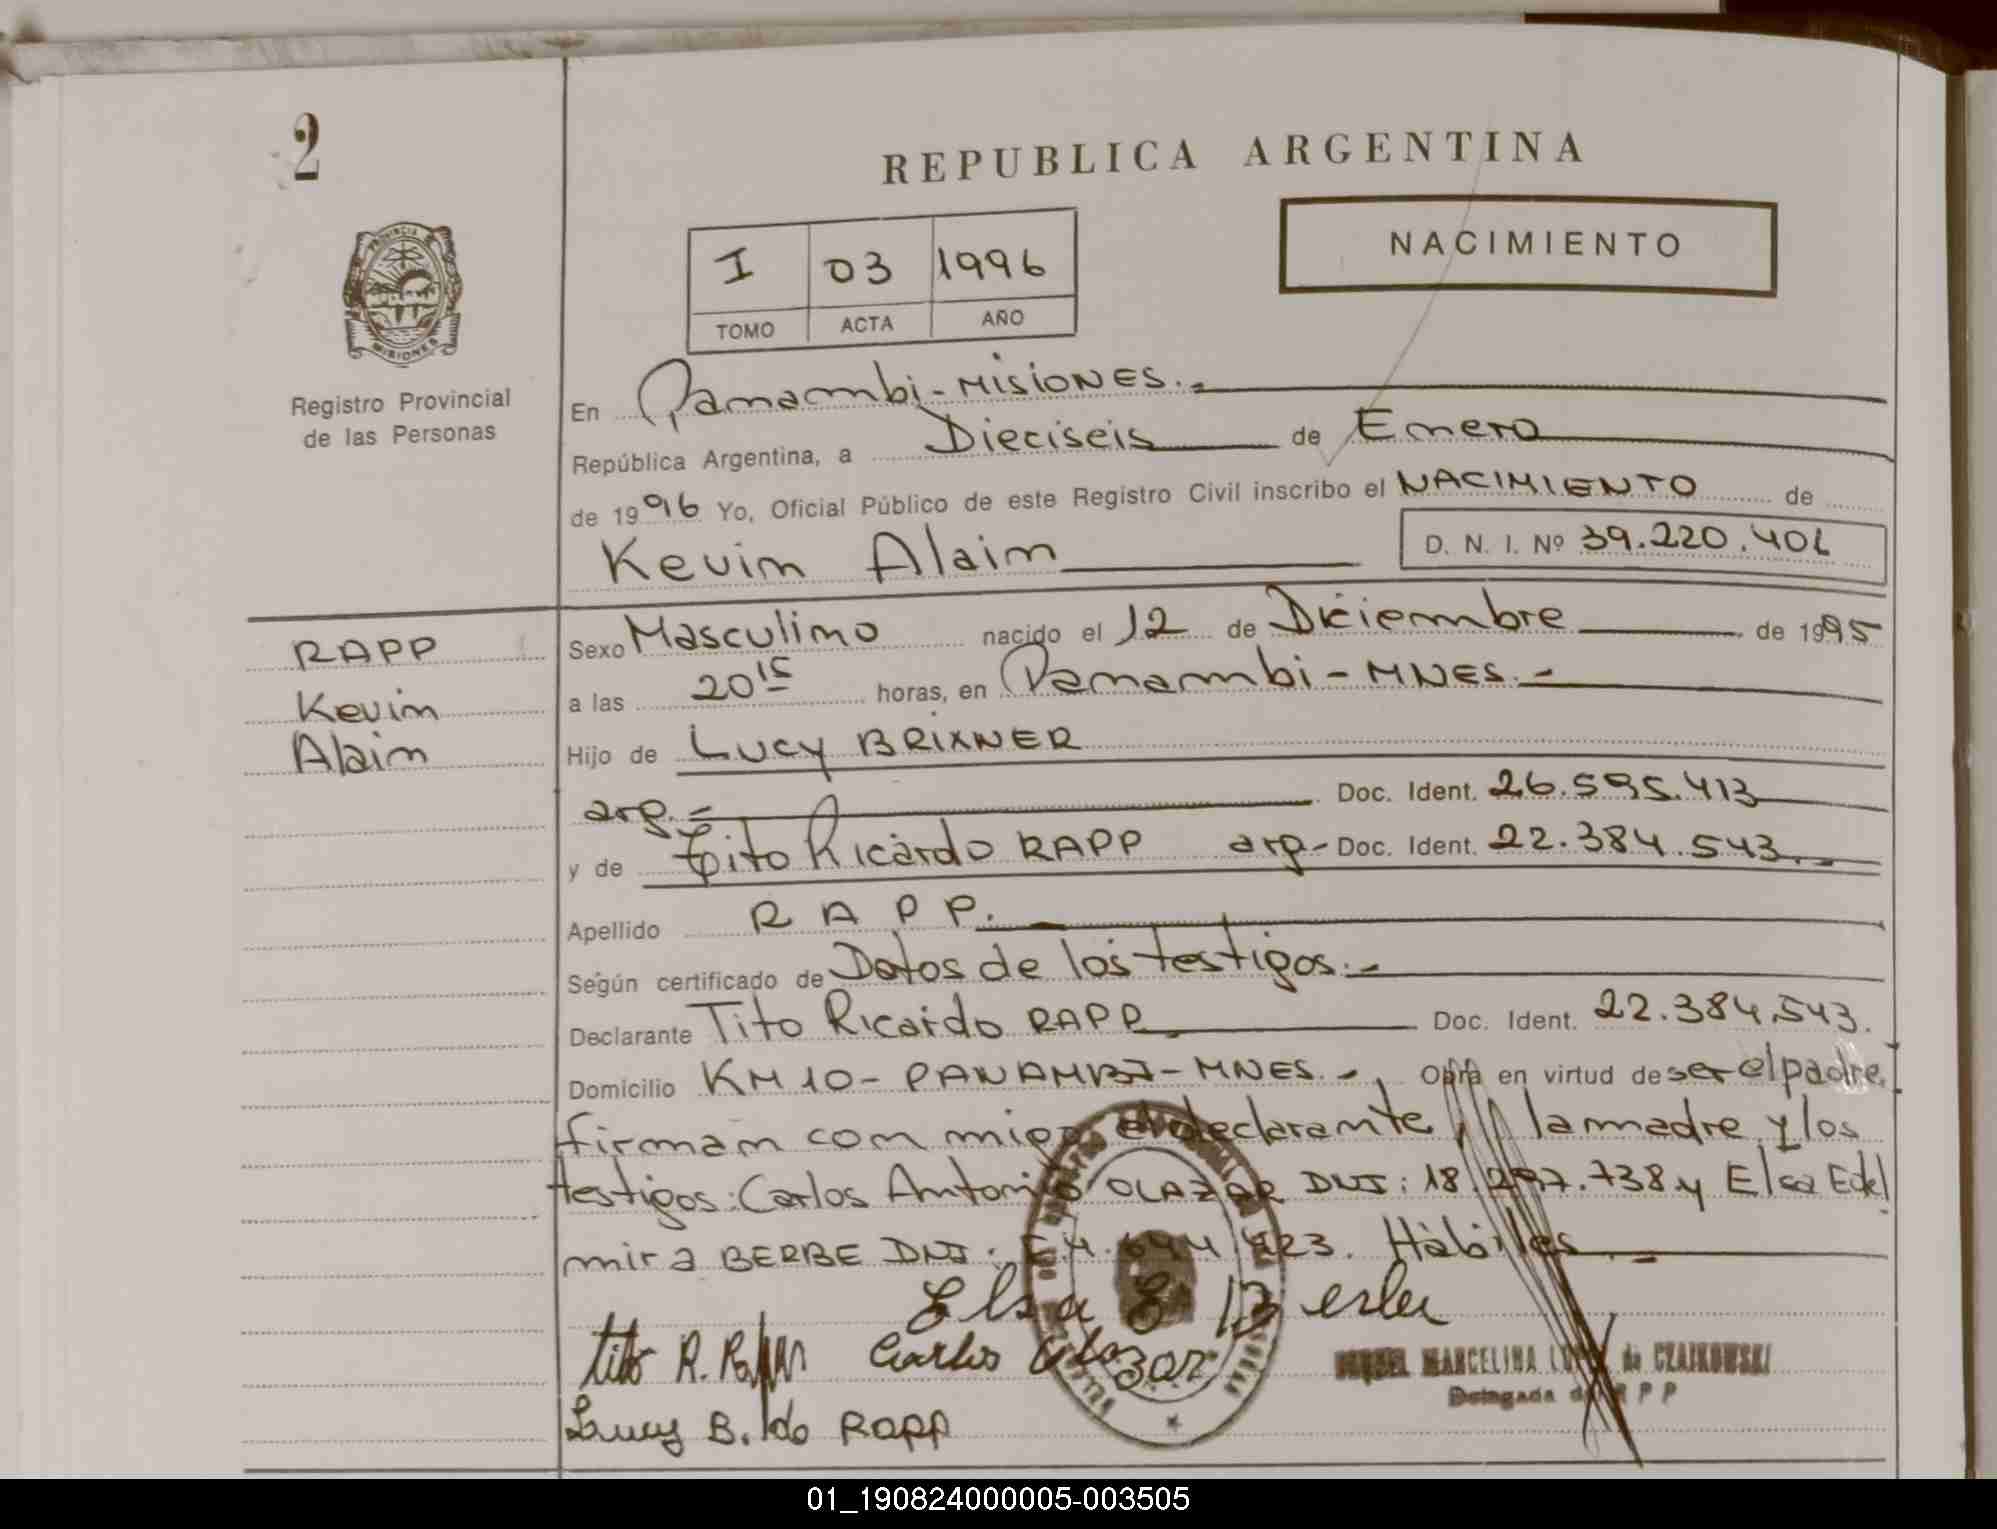 2
REPUBLICA ARGENTINA
NACIMIENTO
I 03 1996
TOMO ACTA AÑO
PROVINCIA
MISIONES
Registro Provincial
de las Personas
En Panambi-MISIONES.-
República Argentina, a Dieciseis de Enero
de 1996 Yo, Oficial Público de este Registro Civil inscribo el NACIMIENTO de
Kevin Alain D. N. I. Nº 39.220.401
RAPP
Kevin
Alain
Sexo Masculino nacido el 12 de Diciembre de 1995
a las 20 15 horas, en Panambi-MNES.-
Hijo de Lucy BRIXNER
arg.- Doc. Ident. 26.595.413
y de Tito Ricardo RAPP arg- Doc. Ident. 22.384.543.-
Apellido RAPP.-
Según certificado de Datos de los testigos.-
Declarante Tito Ricardo RAPP Doc. Ident. 22.384.543.
Domicilio KM 10- PANAMBI-MNES.-, Obra en virtud de ser el padre,
firman con migo el declarante, la madre y los
testigos: Carlos Antonio OLAZAR DNI: 18.297.738 y Elsa Edel
mira BERBE DNI: 644.423. Hábiles.-
Elsa E
Tito R. Rapp Carlos Olazar
MARCELINA de CZAIKOWSKI
Delegada R P P
Lucy B. de Rapp
01_190824000005-003505